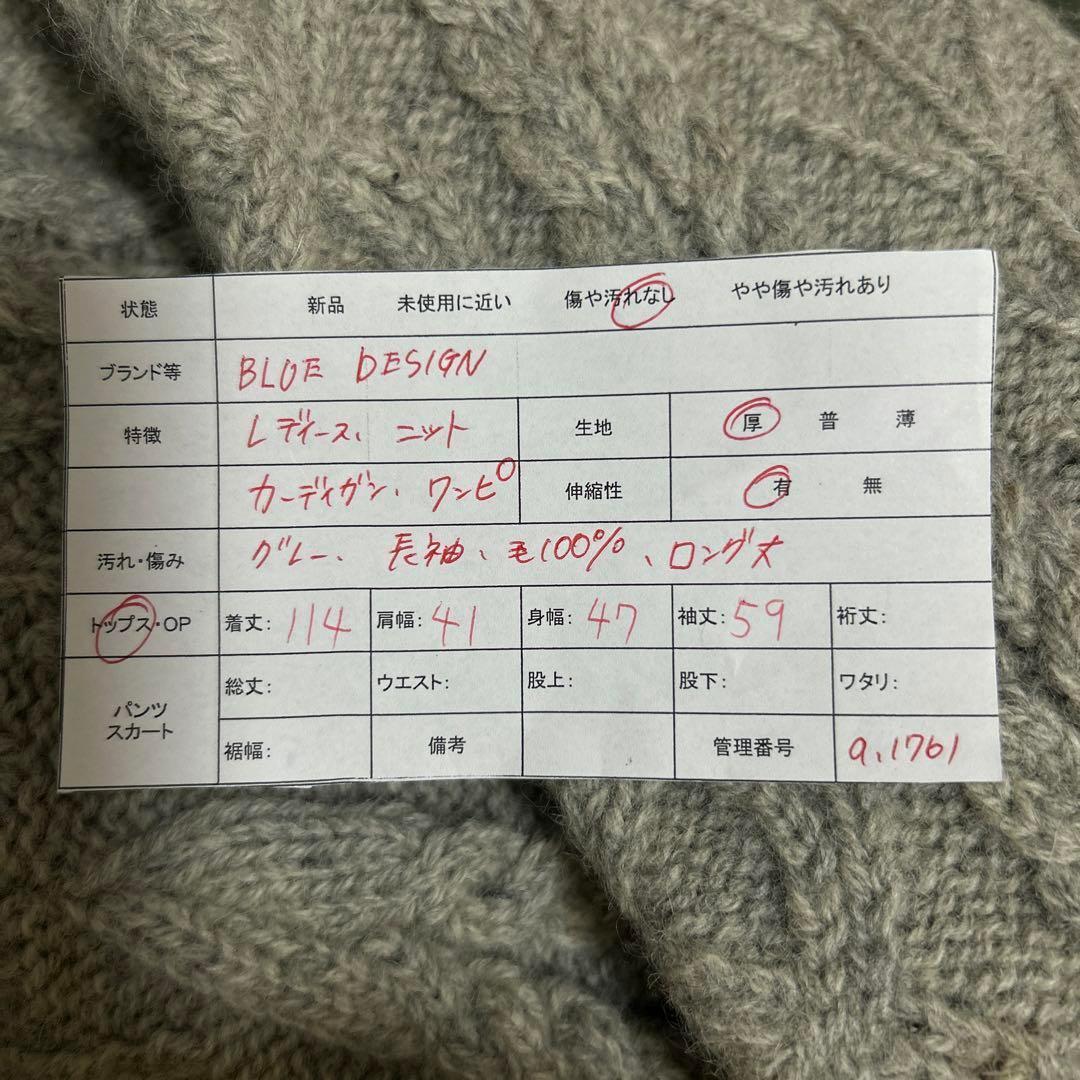 状態 新品 未使用に近い 傷や汚れなし やや傷や汚れあり
ブランド等 BLUE DESIGN
特徴 レディース、ニット 生地 厚 普 薄
カーディガン、ワンピ 伸縮性 有 無
汚れ・傷み グレー、長袖、毛100%、ロング丈
トップス・OP 着丈: 114 肩幅: 41 身幅: 47 袖丈: 59 裄丈:
パンツ スカート 総丈: ウエスト: 股上: 股下: ワタリ:
裾幅: 備考 管理番号 a.1761